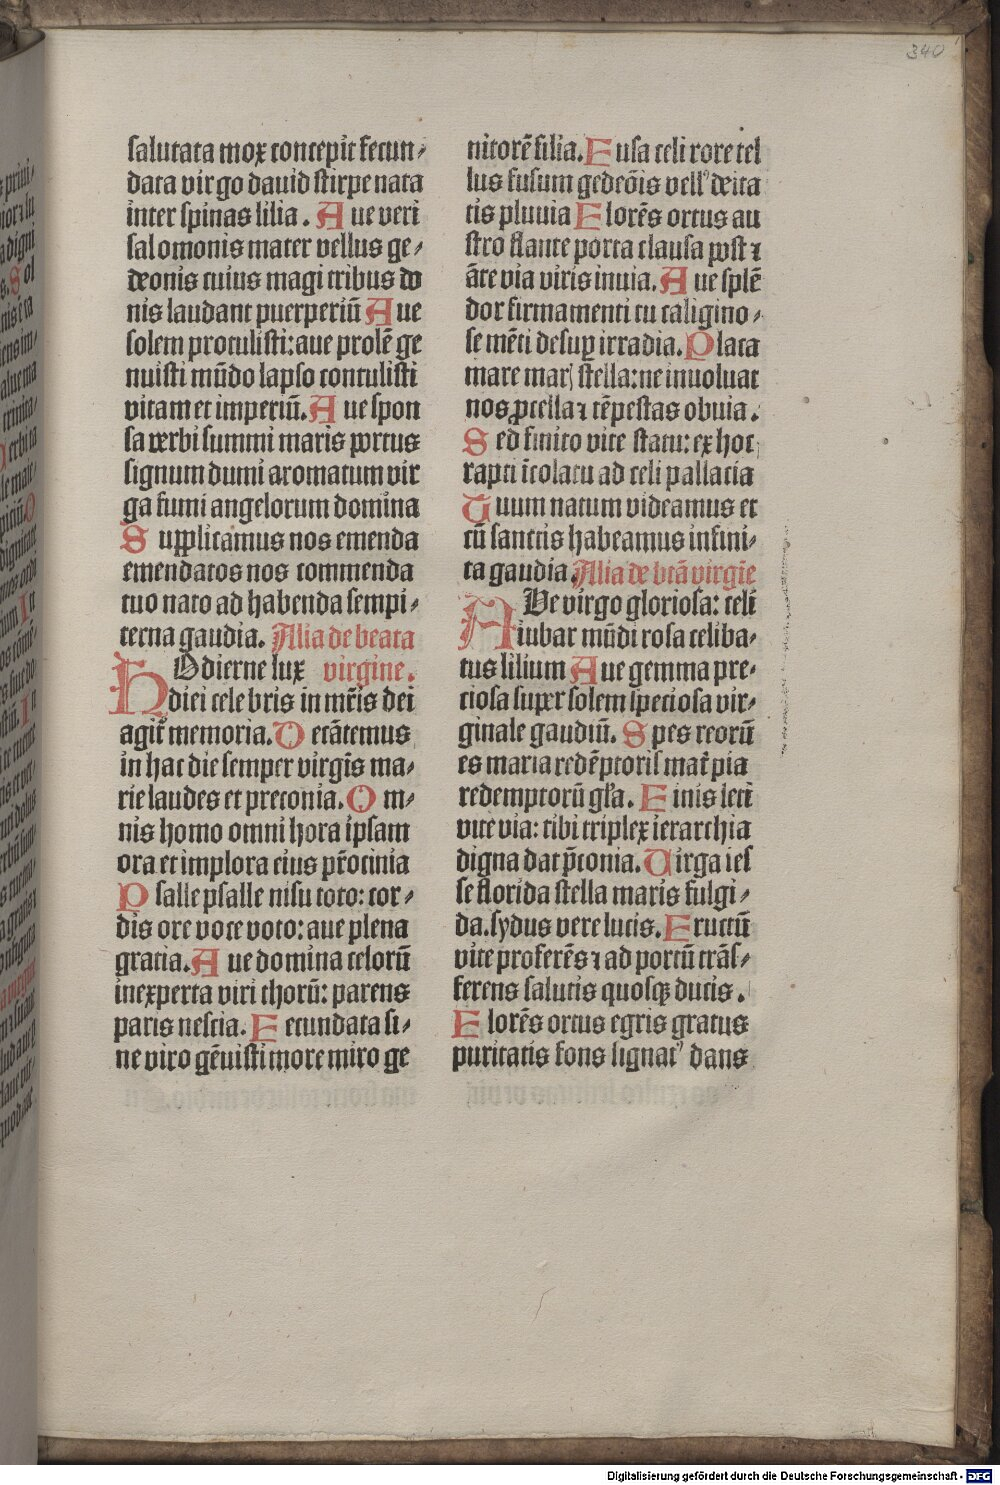 340
salutata mox concepit fecun⸗
data virgo dauid stirpe nata
inter spinas lilia. Aue veri
salomonis mater vellus ge⸗
deonis cuius magi tribus do
nis laudant puerperiū Aue
solem protulisti: aue prolē ge
nuisti mūdo lapso contulisti
vitam et imperiū. Aue spon
sa verbi summi maris portus
signum dumi aromatum vir
ga fumi angelorum domina
Supplicamus nos emenda
emendatos nos commenda
tuo nato ad habenda sempi⸗
terna gaudia. Alia de beata
Hodierne lux virgine.
diei celebris in mr̄is dei
agit᷑ memoria. Decātemus
in hac die semper virgīs ma⸗
rie laudes et preconia. Om⸗
nis homo omni hora ipsam
ora et implora eius pr̄ocinia
Psalle psalle nisu toto: cor⸗
dis ore voce voto: aue plena
gratia. Aue domina celorū
inexperta viri thorū: parens
paris nescia. Fecundata si⸗
ne viro gēuisti more miro ge
nitorē filia. Fusa celi rore tel
lus fusum gedeōis vellꝰ deita
tis pluuia Florēs ortus au
stro flante porta clausa post ⁊
āte via viris inuia. Aue splē
dor firmamenti tu caligino⸗
se mēti desuꝑ irradia. Placa
mare marꝭ stella: ne inuoluat
nos ꝓcella ⁊ tēpestas obuia.
Sed finito vite statu: ex hoc
rapti īcolatu ad celi pallacia
Tuum natum videamus et
cū sanctis habeamus infini⸗
ta gaudia. Alia de btā virgīe
AVe virgo gloriosa: celi
iubar mūdi rosa celiba⸗
tus lilium Aue gemma pre⸗
ciosa super solem speciosa vir⸗
ginale gaudiū. Spes reorū
es maria redēptoris mat᷑ pia
redemptorū gl̄a. Finis leti
vite via: tibi triplex ierarchia
digna dat p̄conia. Uirga ies
se florida stella maris fulgi⸗
da. sydus vere lucis. Fructū
vite proferēs ⁊ ad portū trās⸗
ferens salutis quosqꝫ ducis.
Florēs ortus egris gratus
puritatis fons lignatꝰ dans
Digitalisierung gefördert durch die Deutsche Forschungsgemeinschaft - DFG